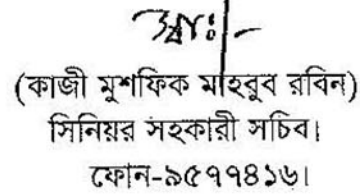 স্বাঃ-
(কাজী মুশফিক মাহবুব রবিন)
সিনিয়র সহকারী সচিব।
ফোন-৯৫৭৭৪১৬।